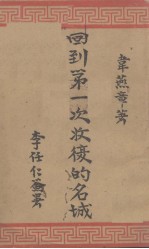 韋燕章著
回到第一次收復的名城
李任仁署